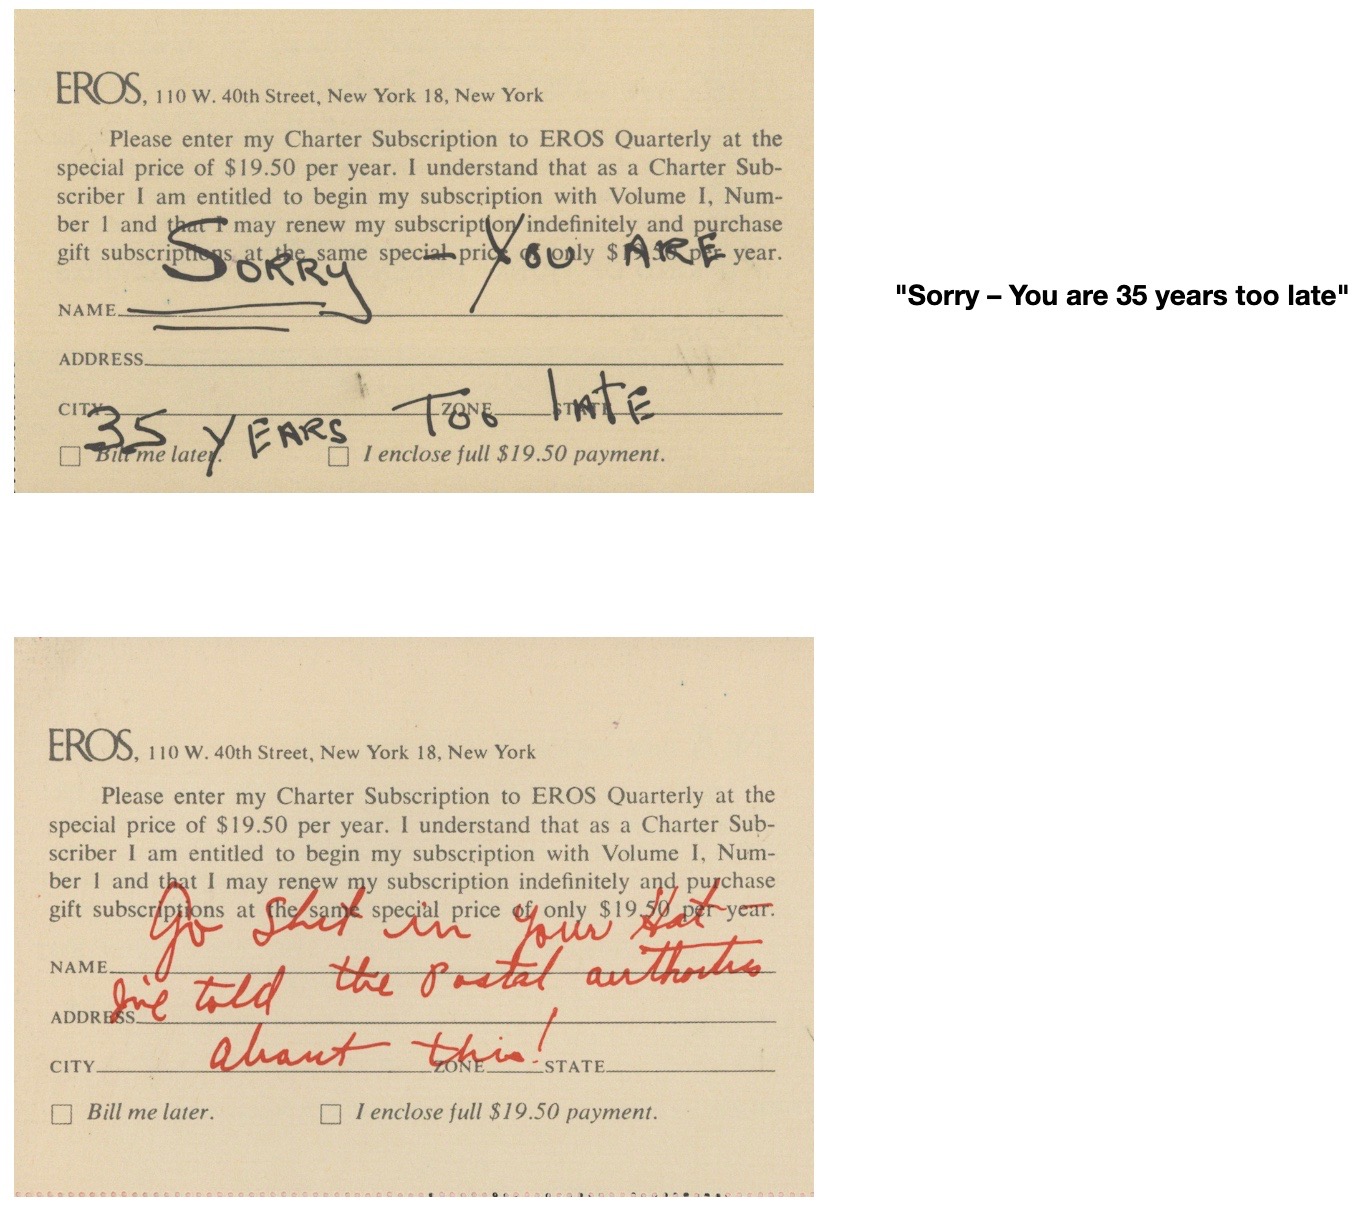 EROS, 110 W. 40th Street, New York 18, New York
Please enter my Charter Subscription to EROS Quarterly at the
special price of $19.50 per year. I understand that as a Charter Sub-
scriber I am entitled to begin my subscription with Volume I, Num-
ber 1 and that I may renew my subscription indefinitely and purchase
gift subscriptions at the same special price of only $19.50 per year.
SORRY – YOU ARE
NAME
ADDRESS
CITY ZONE STATE
35 YEARS Too lATE
Bill me later. I enclose full $19.50 payment.
"Sorry – You are 35 years too late"
EROS, 110 W. 40th Street, New York 18, New York
Please enter my Charter Subscription to EROS Quarterly at the
special price of $19.50 per year. I understand that as a Charter Sub-
scriber I am entitled to begin my subscription with Volume I, Num-
ber 1 and that I may renew my subscription indefinitely and purchase
gift subscriptions at the same special price of only $19.50 per year.
Go Shit in your Hat –
NAME
I've told the Postal authorties
ADDRESS
about this!
CITY ZONE STATE
Bill me later. I enclose full $19.50 payment.